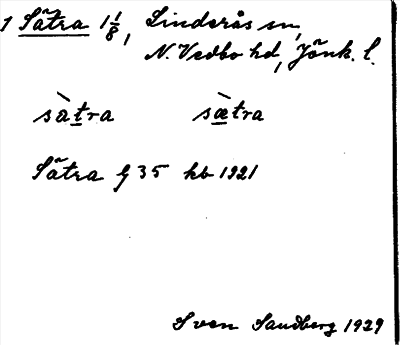 1 Sätra 1 1/8, Linderås sn,
N. Vedbo hd, Jönk. l.
sàtra sæ̀tra
Sätra G 35 kb 1921
Sven Sandberg 1929